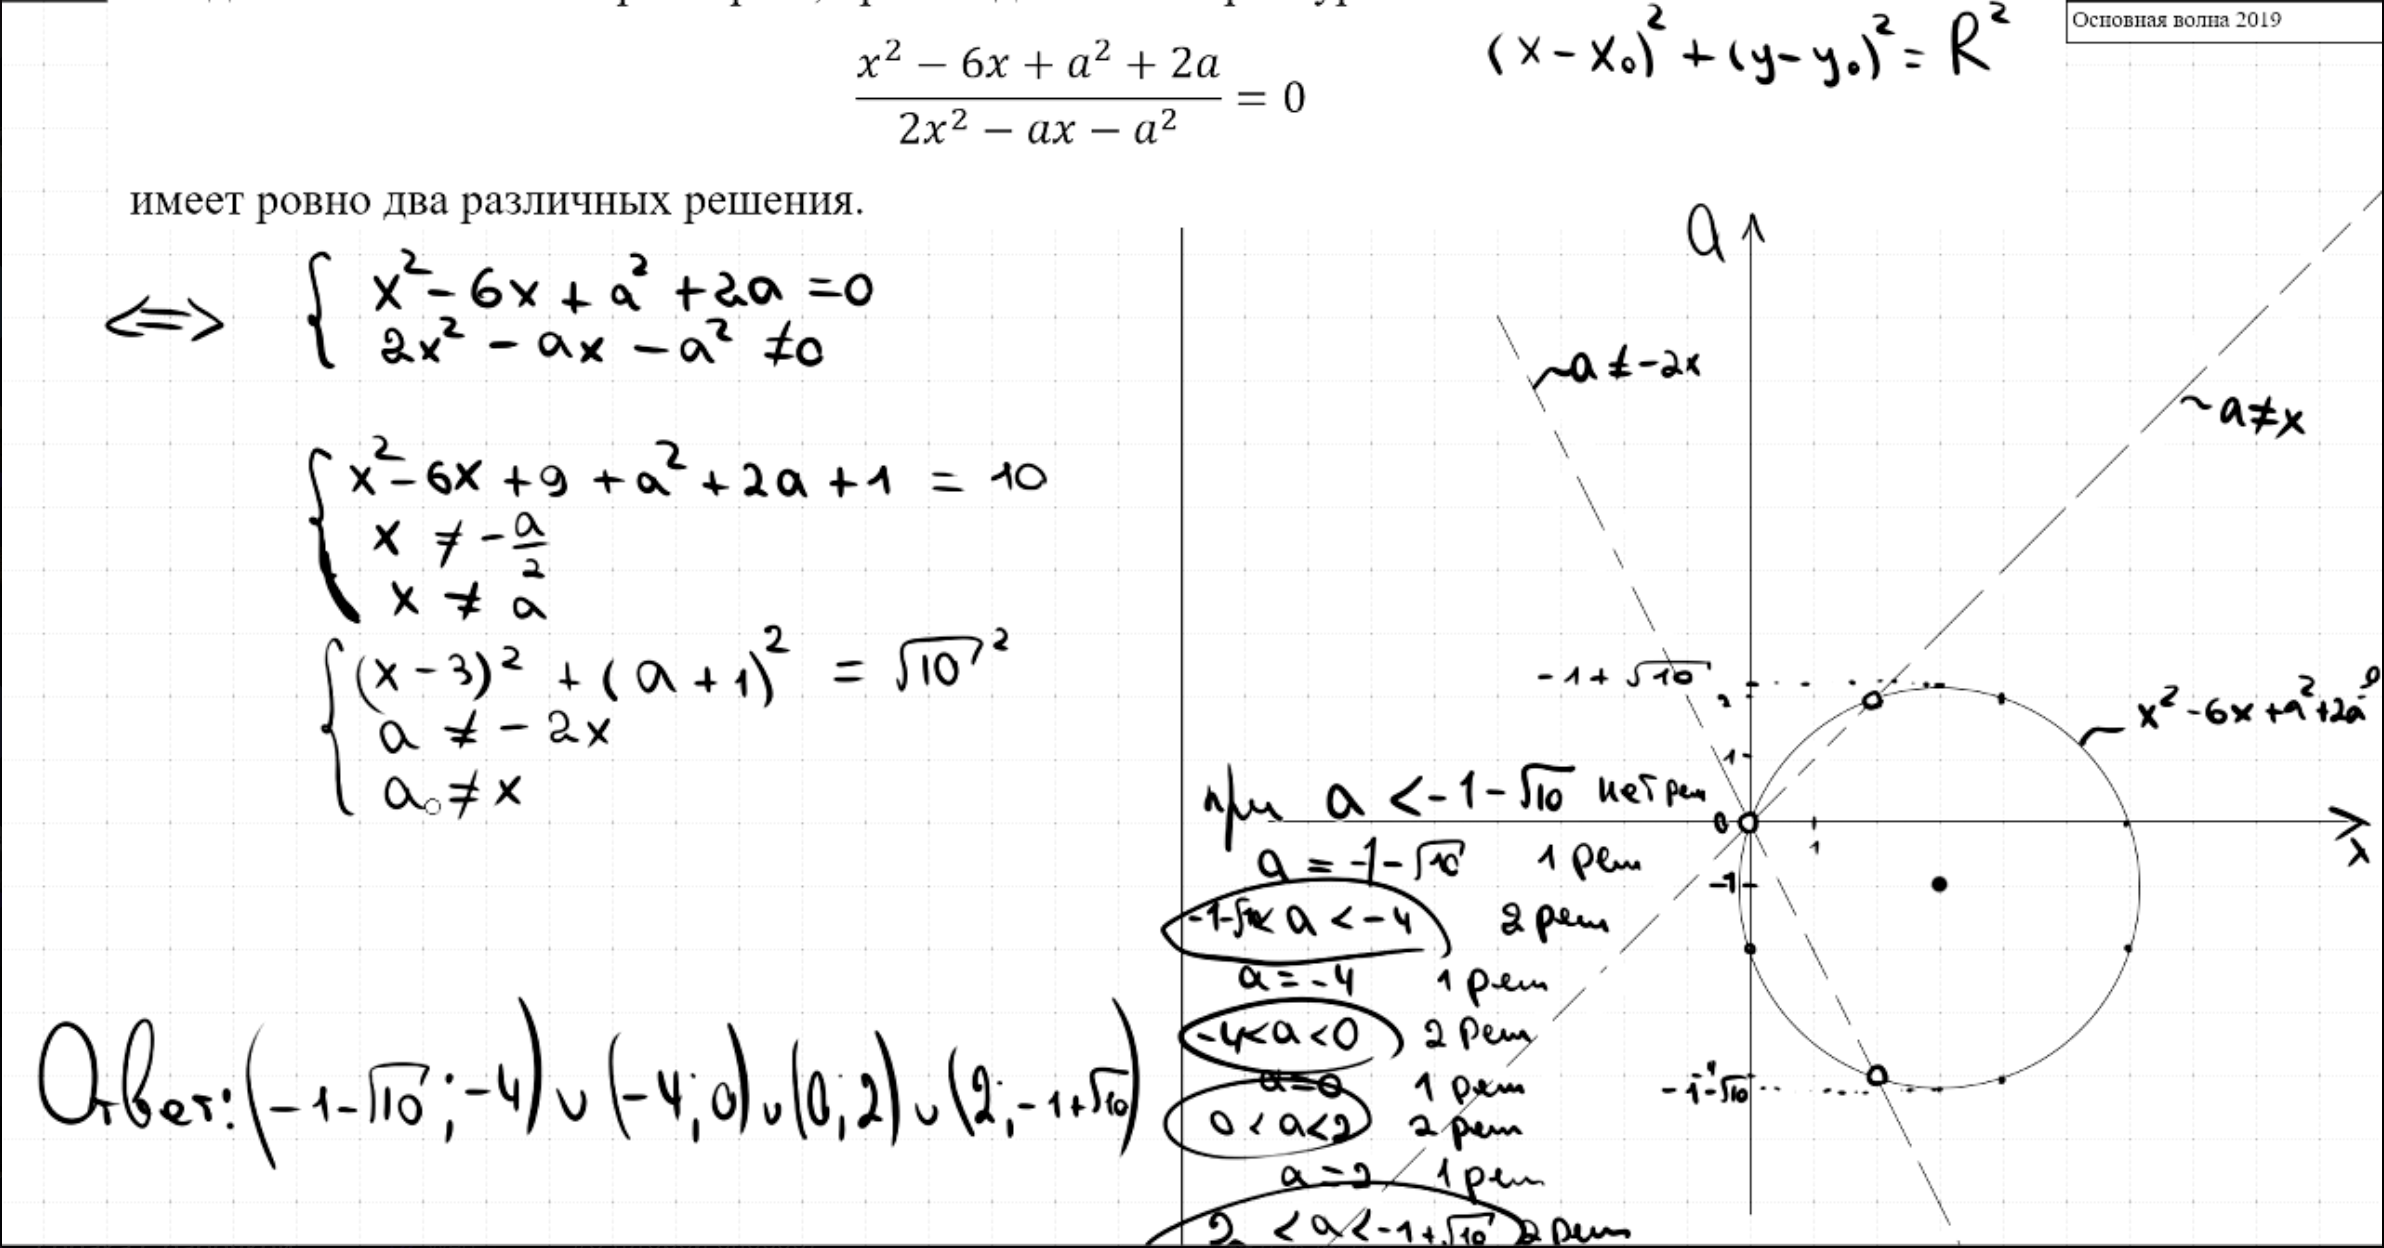 Основная волна 2019
(x-x₀)² + (y-y₀)² = R²
x² − 6x + a² + 2a
2x² − ax − a²
= 0
имеет ровно два различных решения.
⇔ { x² - 6x + a² + 2a = 0
2x² - ax - a² ≠ 0
{ x² - 6x + 9 + a² + 2a + 1 = 10
x ≠ - a/2
x ≠ a
{ (x - 3)² + (a + 1)² = √10²
a ≠ - 2x
a ≠ x
Ответ: (-1-√10; -4) ∪ (-4; 0) ∪ (0; 2) ∪ (2; -1+√10)
a
a ≠ -2x
a ≠ x
-1 + √10
2
x² - 6x + a² + 2a
1
0
1
x
-1
-4
-1-√10
при a < -1 - √10 нет реш
a = -1 - √10 1 реш
-1-√10 < a < -4 2 реш
a = -4 1 реш
-4 < a < 0 2 реш
a = 0 1 реш
0 < a < 2 2 реш
a = 2 1 реш
2 < a < -1 + √10 2 реш